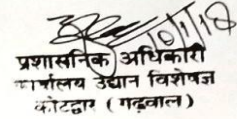 10/1/18
प्रशासनिक अधिकारी
कार्यालय उद्यान विशेषज्ञ
कोटद्वार ( गढ़वाल )